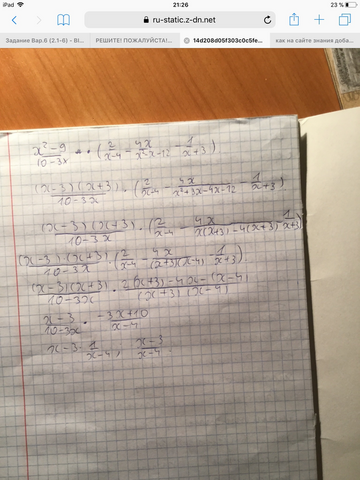 iPad 21:26 23 %
ru-static.z-dn.net
Задание Вар.6 (2.1-6) - В... РЕШИТЕ! ПОЖАЛУЙСТА!... 14d208d05f303c0c5fe... как на сайте знания доба...
(x²-9)/(10-3x) · (2/(x-4) - 4x/(x²-x-12) - 1/(x+3))
(x-3)(x+3)/(10-3x) · (2/(x-4) - 4x/(x²+3x-4x-12) - 1/(x+3))
(x-3)(x+3)/(10-3x) · (2/(x-4) - 4x/(x(x+3)-4(x+3)) - 1/(x+3))
(x-3)·(x+3)/(10-3x) · (2/(x-4) - 4x/((x+3)(x-4)) - 1/(x+3)).
(x-3)(x+3)/(10-3x) · (2(x+3)-4x-(x-4))/((x+3)(x-4))
(x-3)/(10-3x) · (-3x+10)/(x-4)
x-3 · 1/(x-4), (x-3)/(x-4).